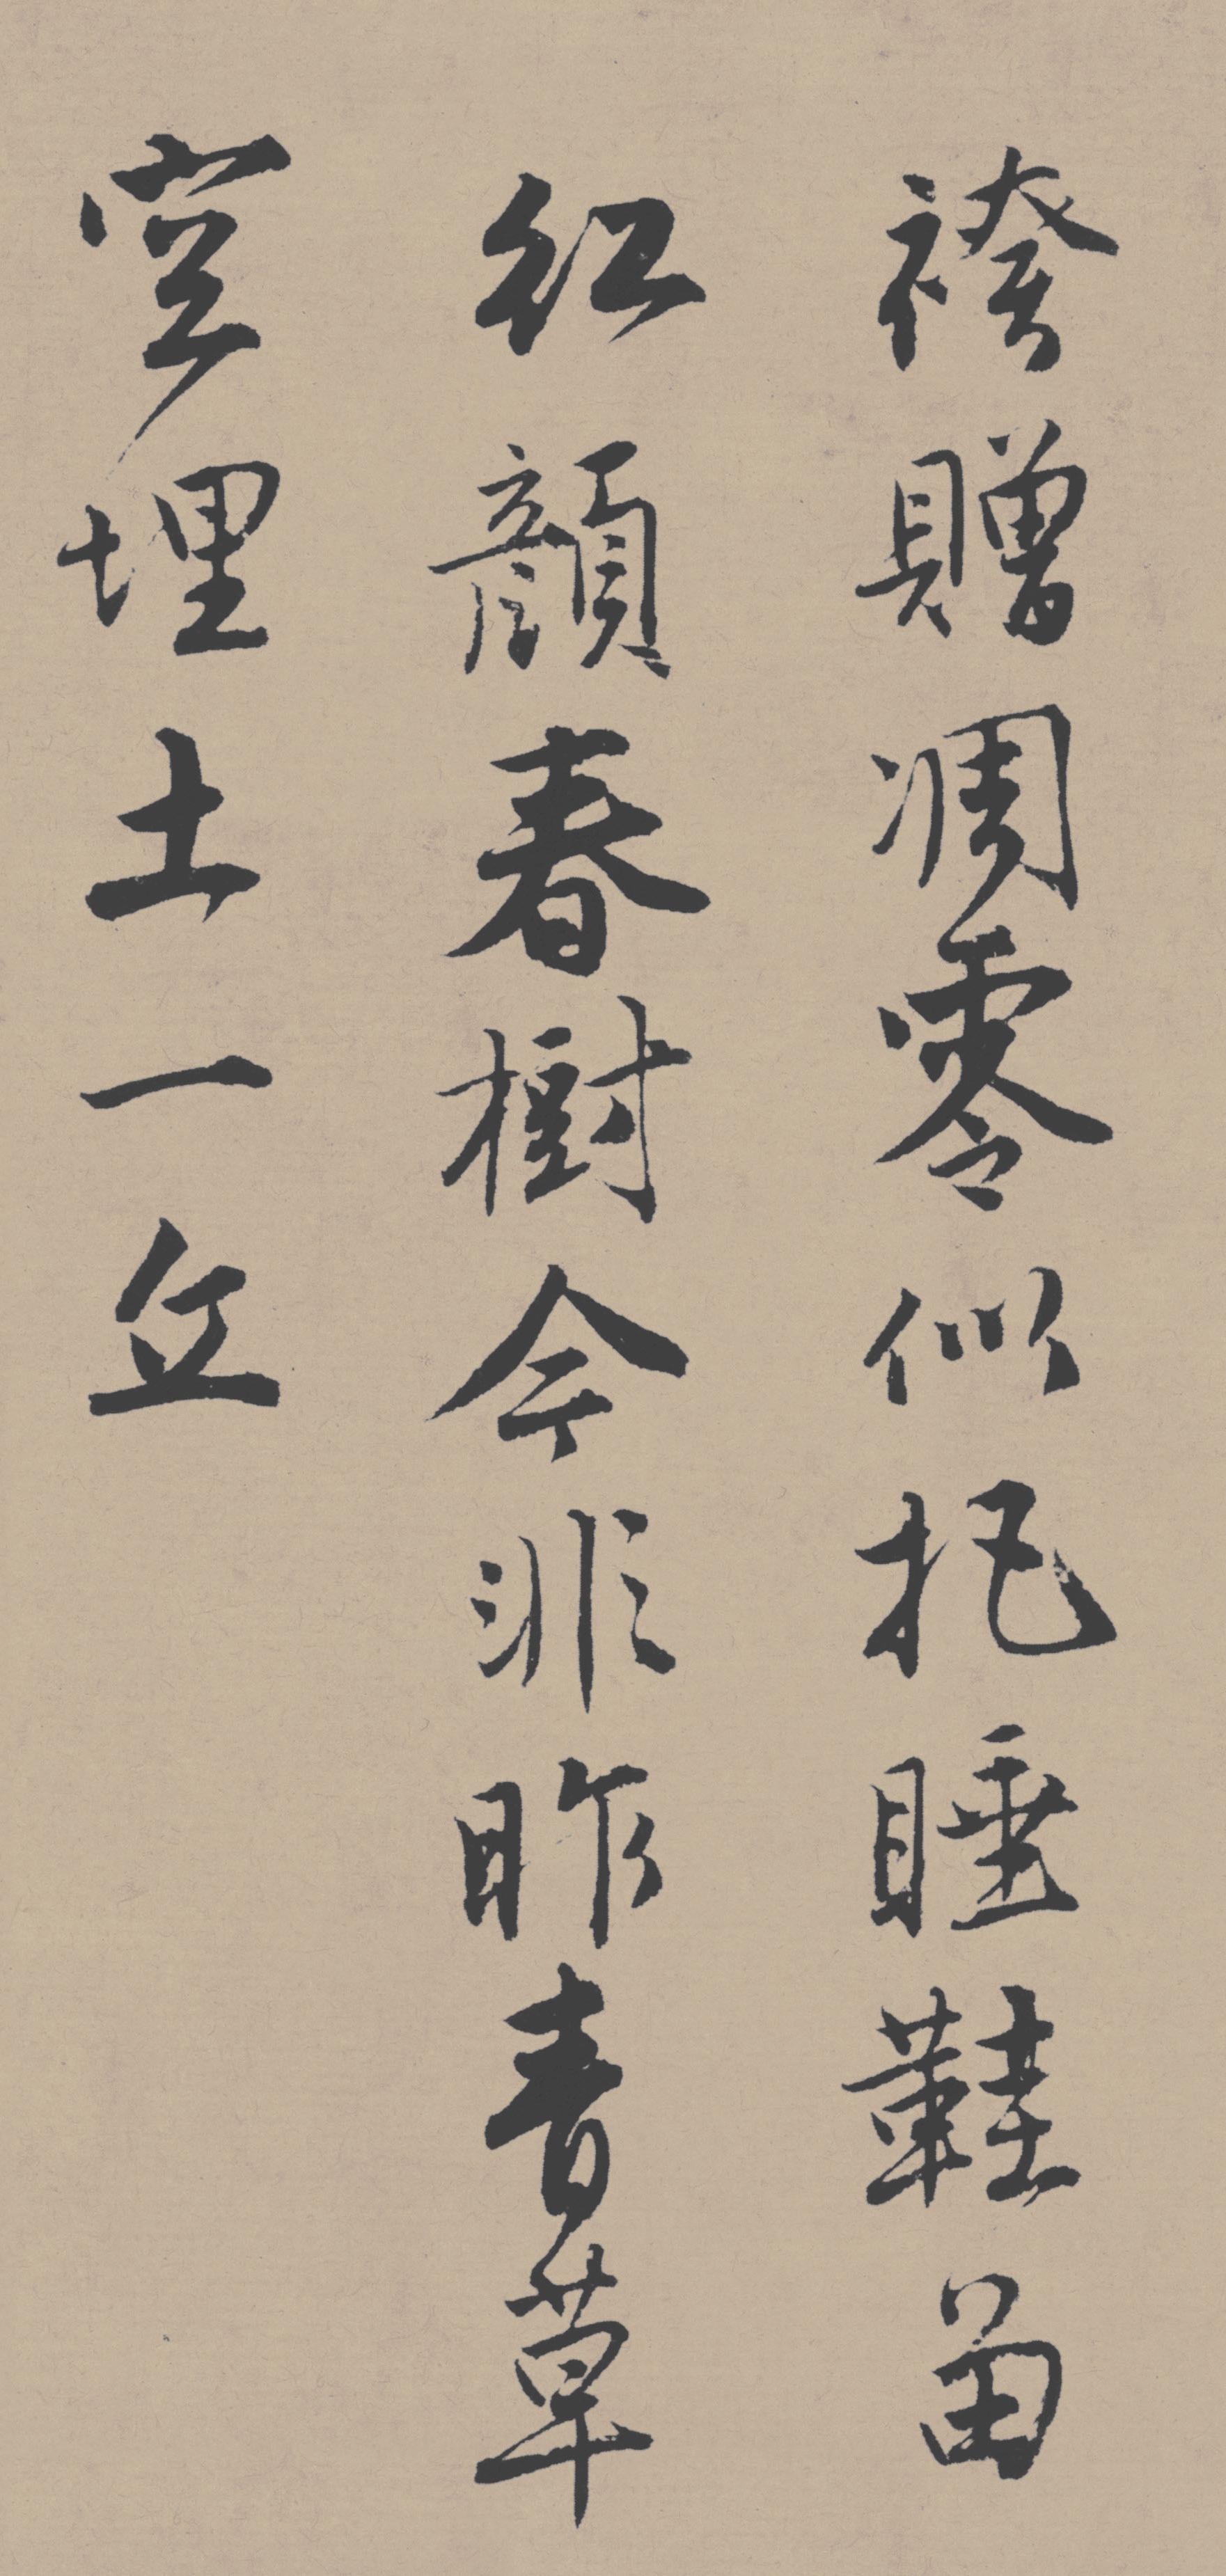 袴贈凋零似抱睡鞋留
紅顏春樹今非昨青草
空埋土一丘